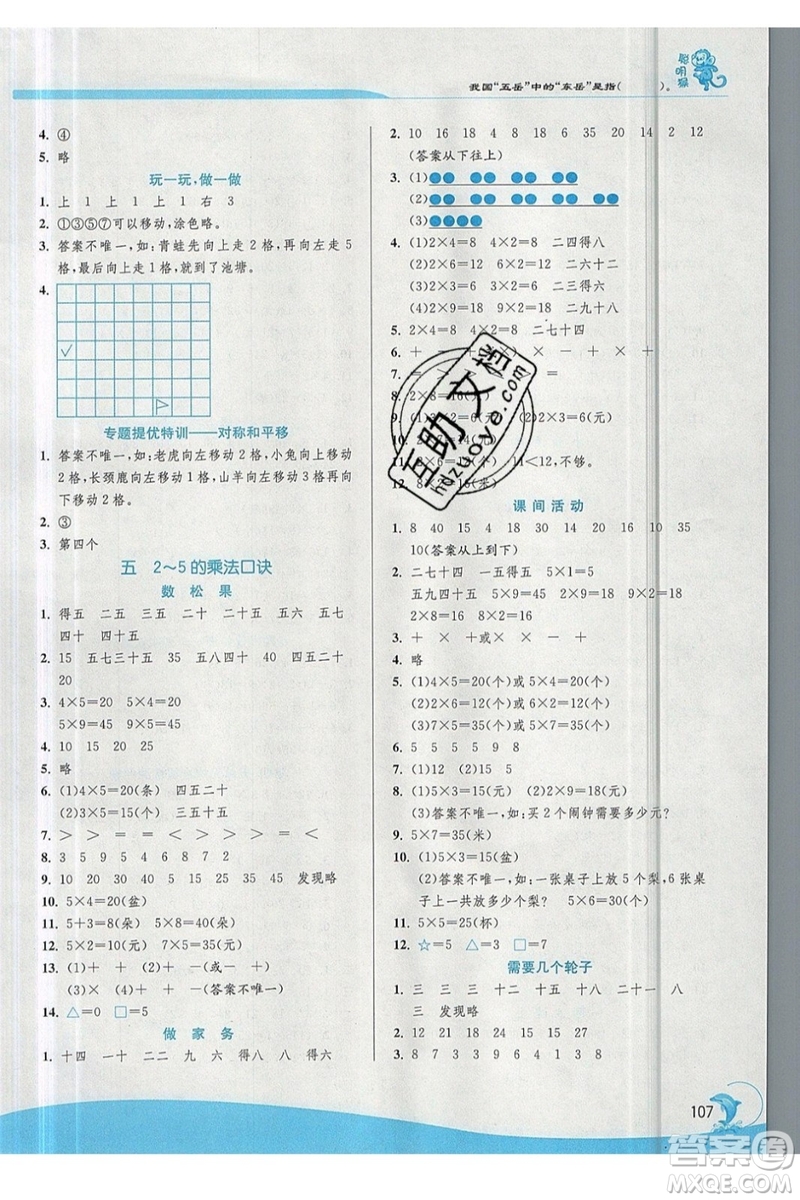 我国“五岳”中的“东岳”是指(　　)。
聪明猴
4. ④
5. 略
玩一玩,做一做
1. 上 1 上 1 上 右 3
2. ①③⑤⑦可以移动,涂色略。
3. 答案不唯一,如:青蛙先向上走2格,再向左走5
格,最后向上走1格,就到了池塘。
4.
专题提优特训——对称和平移
1. 答案不唯一,如:老虎向左移动2格,小兔向上移动
2格。长颈鹿向左移动2格,山羊向右移动2格、
向下移动2格。
2. ③
3. 第四个
五 2~5的乘法口诀
数松果
1. 得五 二五 三五 二十 二十五 五六 五七
四十 四十五
2. 15 五七三十五 五五二十五 30 40 五四二十
20
3. 4×5=20 5×3=15 5×5=25
5×9=45 9×5=45
4. 10 15 20 25
5. 略
6. (1)4×5=20(条) 四五二十
(2)3×5=15(个) 三五十五
7. > > = = > = <
8. 3 5 9 4 6 8 7 2
9. 10 20 30 40 15 25 35 45 发现略
10. 5×4=20(盆)
11. 5+3=8(朵) 5×8=40(朵)
12. 5×2=10(元) 7×5=35(元)
13. (1)+ + (2)- -(或× -)
(3)× + + -(答案不唯一)
14. △=0 □=5
做家务
1. 十四 一十 二二 九 六 得八 八 得六
2. 10 16 4 18 8 2 6 12 14
(答案从下往上)
3. (1)
(2)
(3)
4. (1)2×4=8 4×2=8 二四得八
(2)2×6=12 6×2=12 二六十二
(4)2×9=18 9×2=18 二九十八
5. 2×4=8 4×2=8 二七十四
6. + × + × ×
7.
8. 2×8=16
9.
10. 5×2=10(元) 8×2=16(元)
11<12,不够。
12. 8×2=16(米)
课间活动
1. 8 40 15 4 18 30 20 16 10 35
10(答案从上到下)
2. 二七十四 一五得五 5×5=25
五九四十五 5×9=45 9×5=45
二八十六 2×8=16 8×2=16
3. + × + ×或× × - × +
4. 略
5. (1)4×5=20(个)或5×4=20(个)
(2)7×5=35(个)或5×7=35(个)
6. 5 5 5 5 9 8
7. = < = < > =
8. (1)4×5=20(元) (2)2×5=10(元)
(3)答案不唯一,如:买2个闹钟需要多少元?
9. 5×7=35(米)
10. (1)5×3=15(盆)
(2)答案不唯一,如:一张桌子上放5个梨,6张桌
子上一共放多少个梨? 5×6=30(个)
11. 5×5=25(杯)
12. ☆=5 △=3 □=7
需要几个轮子
1. 三 三 三 十二 十五 六 二十一 八
三 发现略
2. 9 12 15 18 21 24 27
107
互助文档
hdzuoye.com
答案圈
MXQE.COM